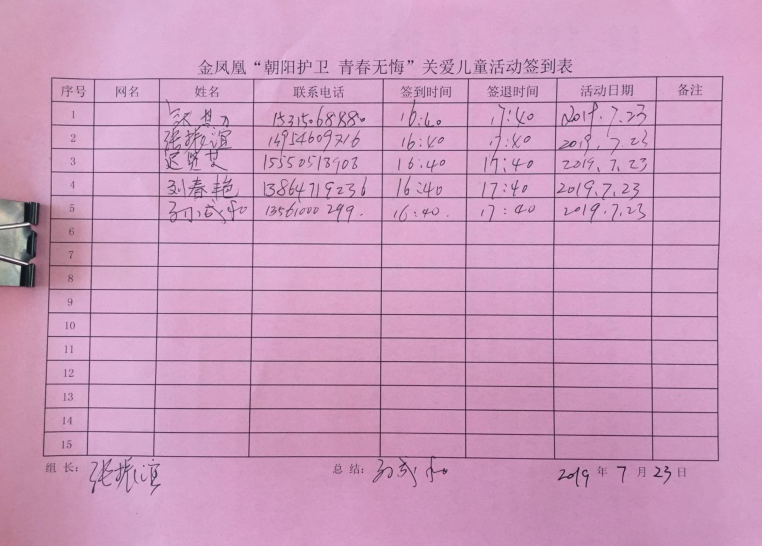 金凤凰“朝阳护卫 青春无悔”关爱儿童活动签到表
序号 网名 姓名 联系电话 签到时间 签退时间 活动日期 备注
1 16:40 17:40 2019.7.23
2 张振谊 16:40 17:40 2019.7.23
3 15550513908 16:40 17:40 2019.7.23
4 刘春艳 13864719236 16:40 17:40 2019.7.23
5 孙成和 13561000299. 16:40. 17:40 2019.7.23
6
7
8
9
10
11
12
13
14
15
组长: 张振谊 总结: 孙成和 2019年7月23日